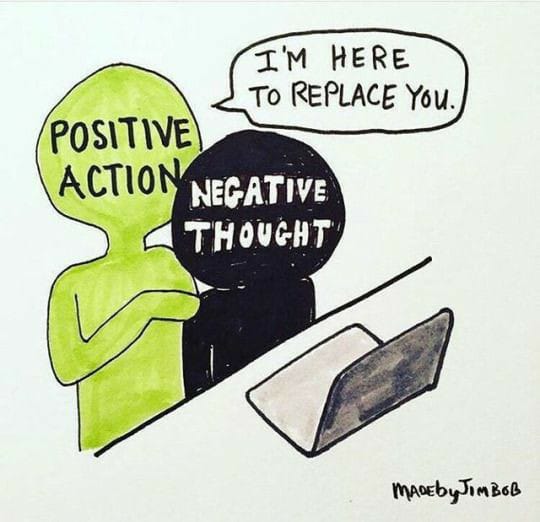 I'M HERE
TO REPLACE YOU.
POSITIVE
ACTION
NEGATIVE
THOUGHT
MADEbyJIMBOB